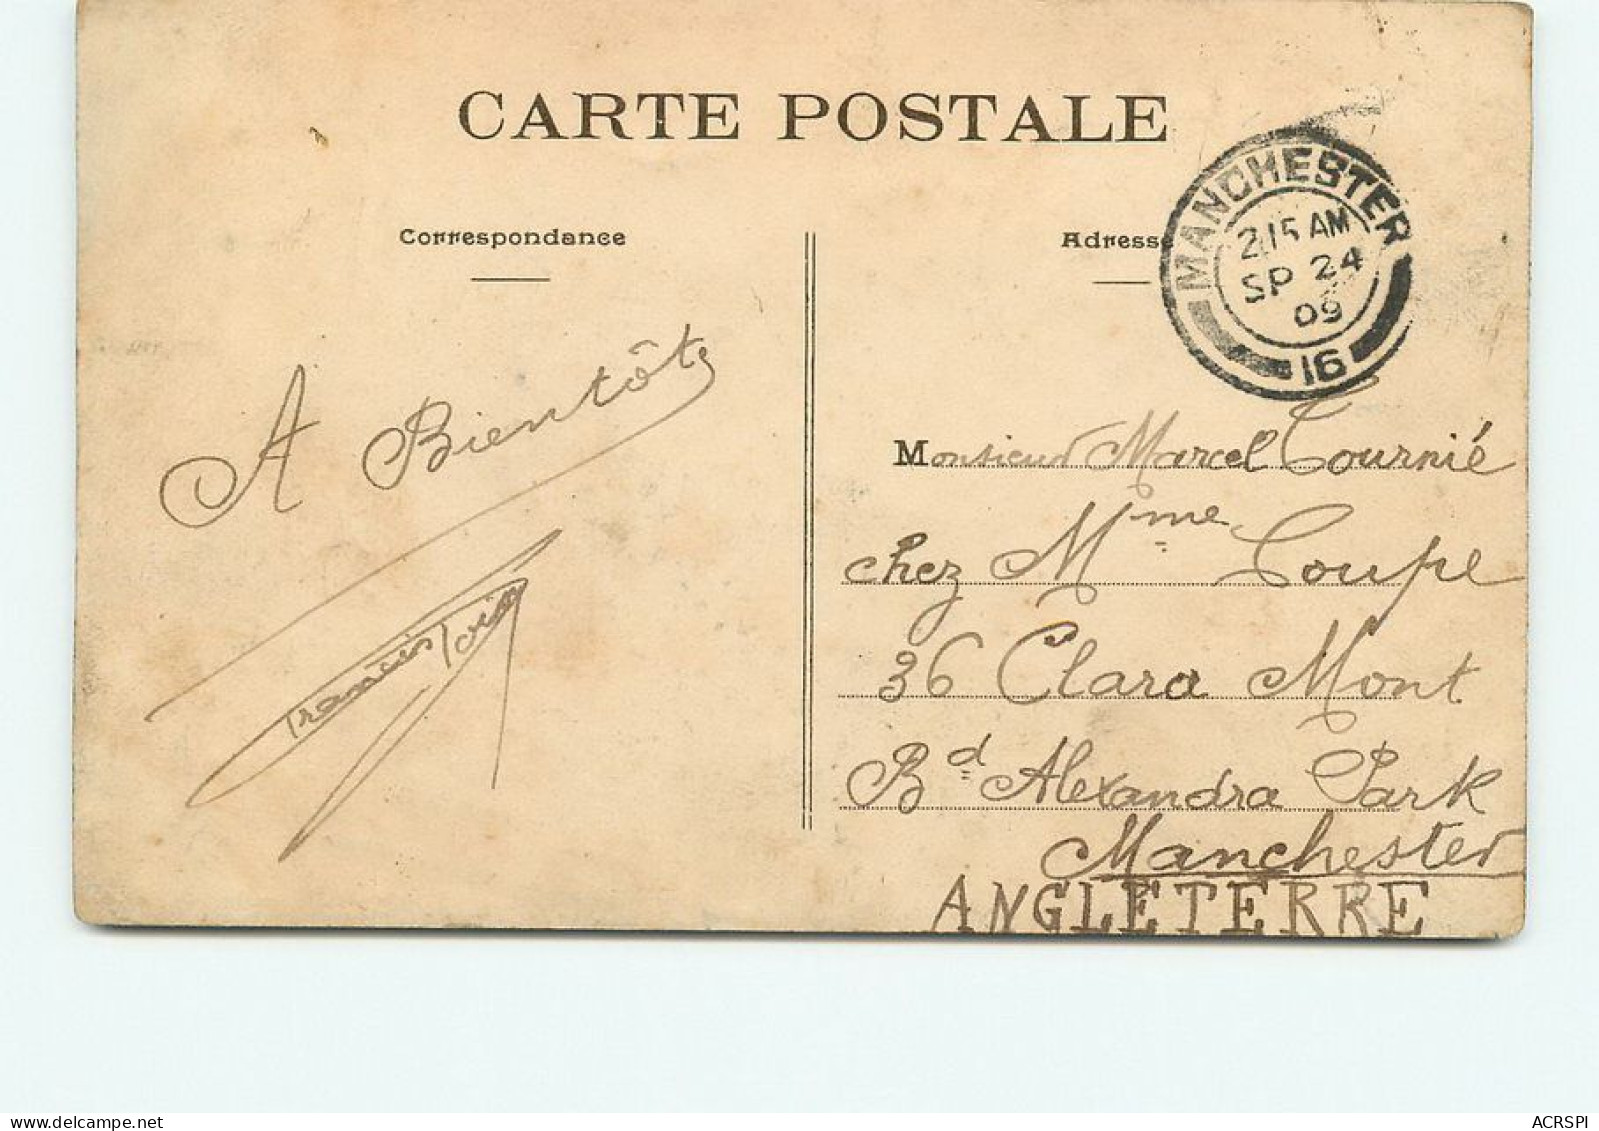 CARTE POSTALE
Correspondance
Adresse
MANCHESTER
2.15 AM
SP 24
09
16
A Bientôt
Monsieur Marcel Tournié
chez Mme Coupe
36 Clara Mont
Bd Alexandra Park
Manchester
ANGLETERRE
delcampe.net
ACRSPI